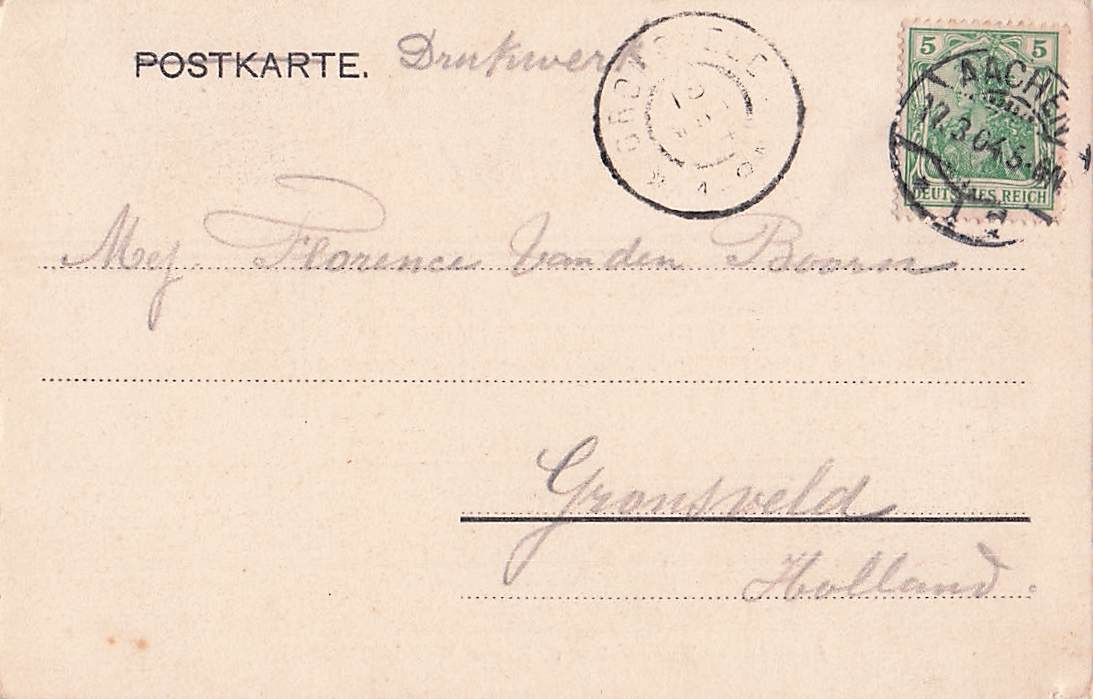 POSTKARTE. Drukwerk
5 5
DEUTSCHES REICH
AACHEN
10.3.04.5-6N.
Mej. Florence Van den Boorn
Gronsveld
Holland.